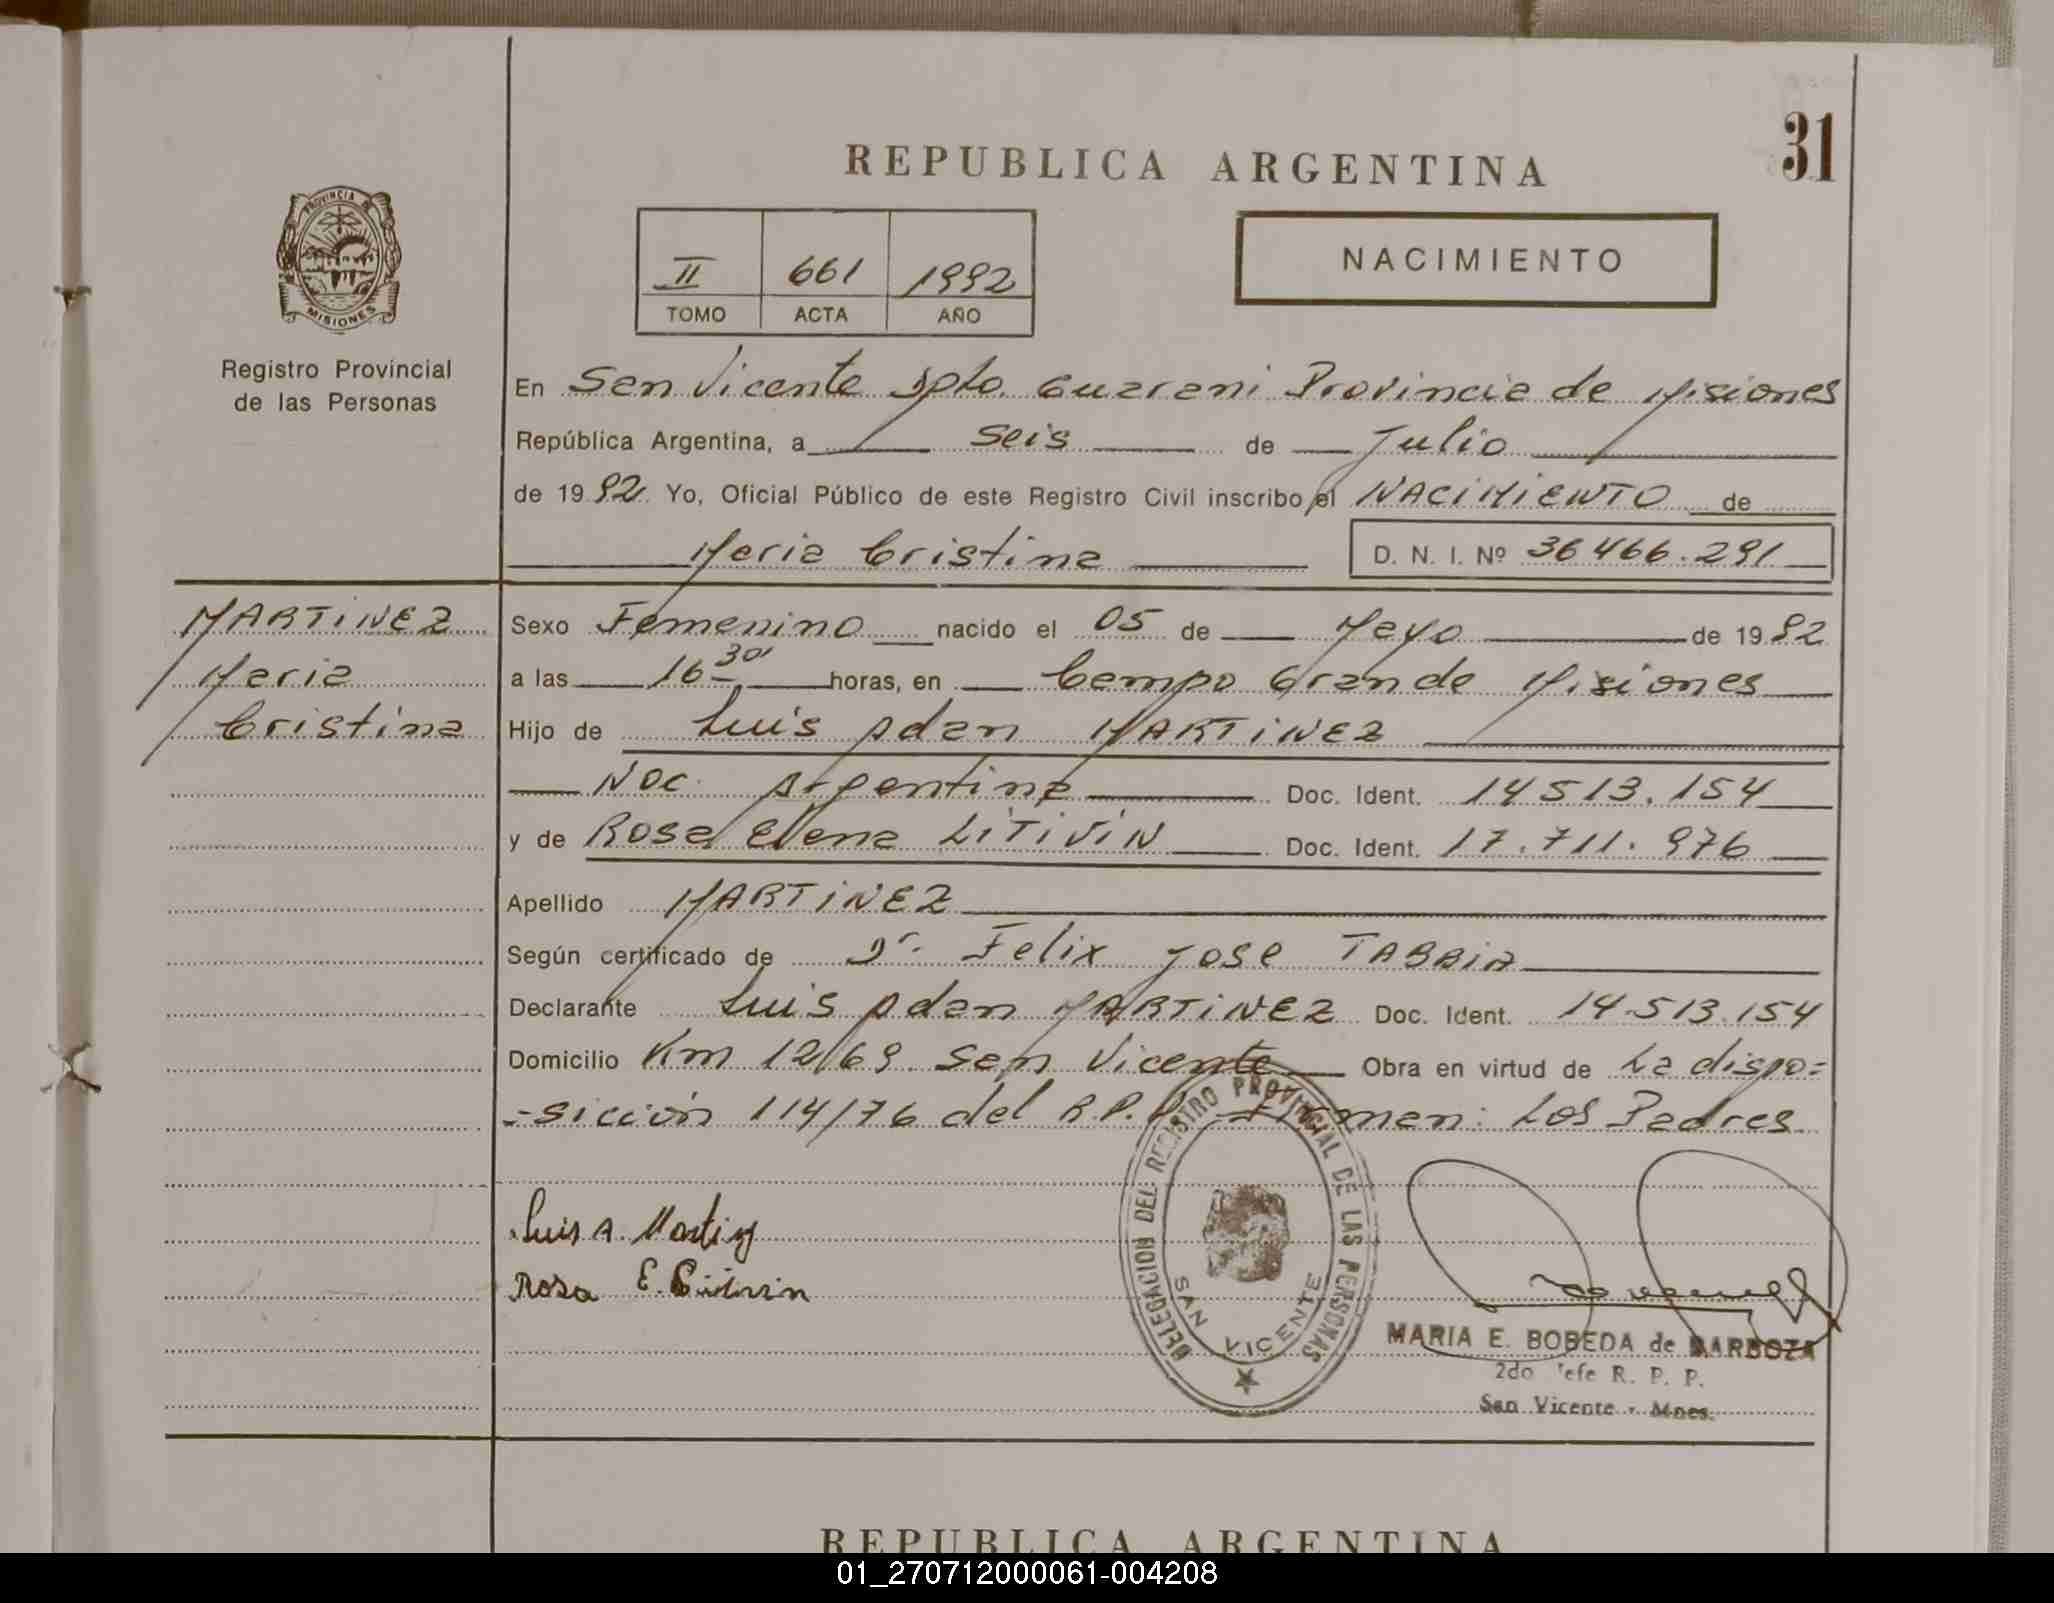 31
REPUBLICA ARGENTINA
PROVINCIA DE
MISIONES
II 661 1992
TOMO ACTA AÑO
NACIMIENTO
Registro Provincial
de las Personas
En San Vicente Dpto. Guarani Provincia de Misiones
República Argentina, a seis de Julio
de 1992 Yo, Oficial Público de este Registro Civil inscribo el NACIMIENTO de
Maria Cristina D. N. I. Nº 36466.291
MARTINEZ
Maria
Cristina
Sexo Femenino nacido el 05 de Mayo de 1992
a las 16-30' horas, en Campo Grande Misiones
Hijo de Luis Adan MARTINEZ
Nac. Argentina Doc. Ident. 14513.154
y de Rosa Elena LITIVIN Doc. Ident. 17.711.976
Apellido MARTINEZ
Según certificado de Dr. Felix Jose TABBIA
Declarante Luis Adan MARTINEZ Doc. Ident. 14.513.154
Domicilio Km 1269 San Vicente Obra en virtud de La dispo=
=sición 114/76 del R.P.P. Firman: Los Padres
Luis A. Martinez
Rosa E.
DELEGACION DEL REGISTRO PROVINCIAL DE LAS PERSONAS
SAN VICENTE
MARIA E. BOBEDA de BARBOZA
2do Jefe R. P. P.
San Vicente - Mnes.
REPUBLICA ARGENTINA
01_270712000061-004208